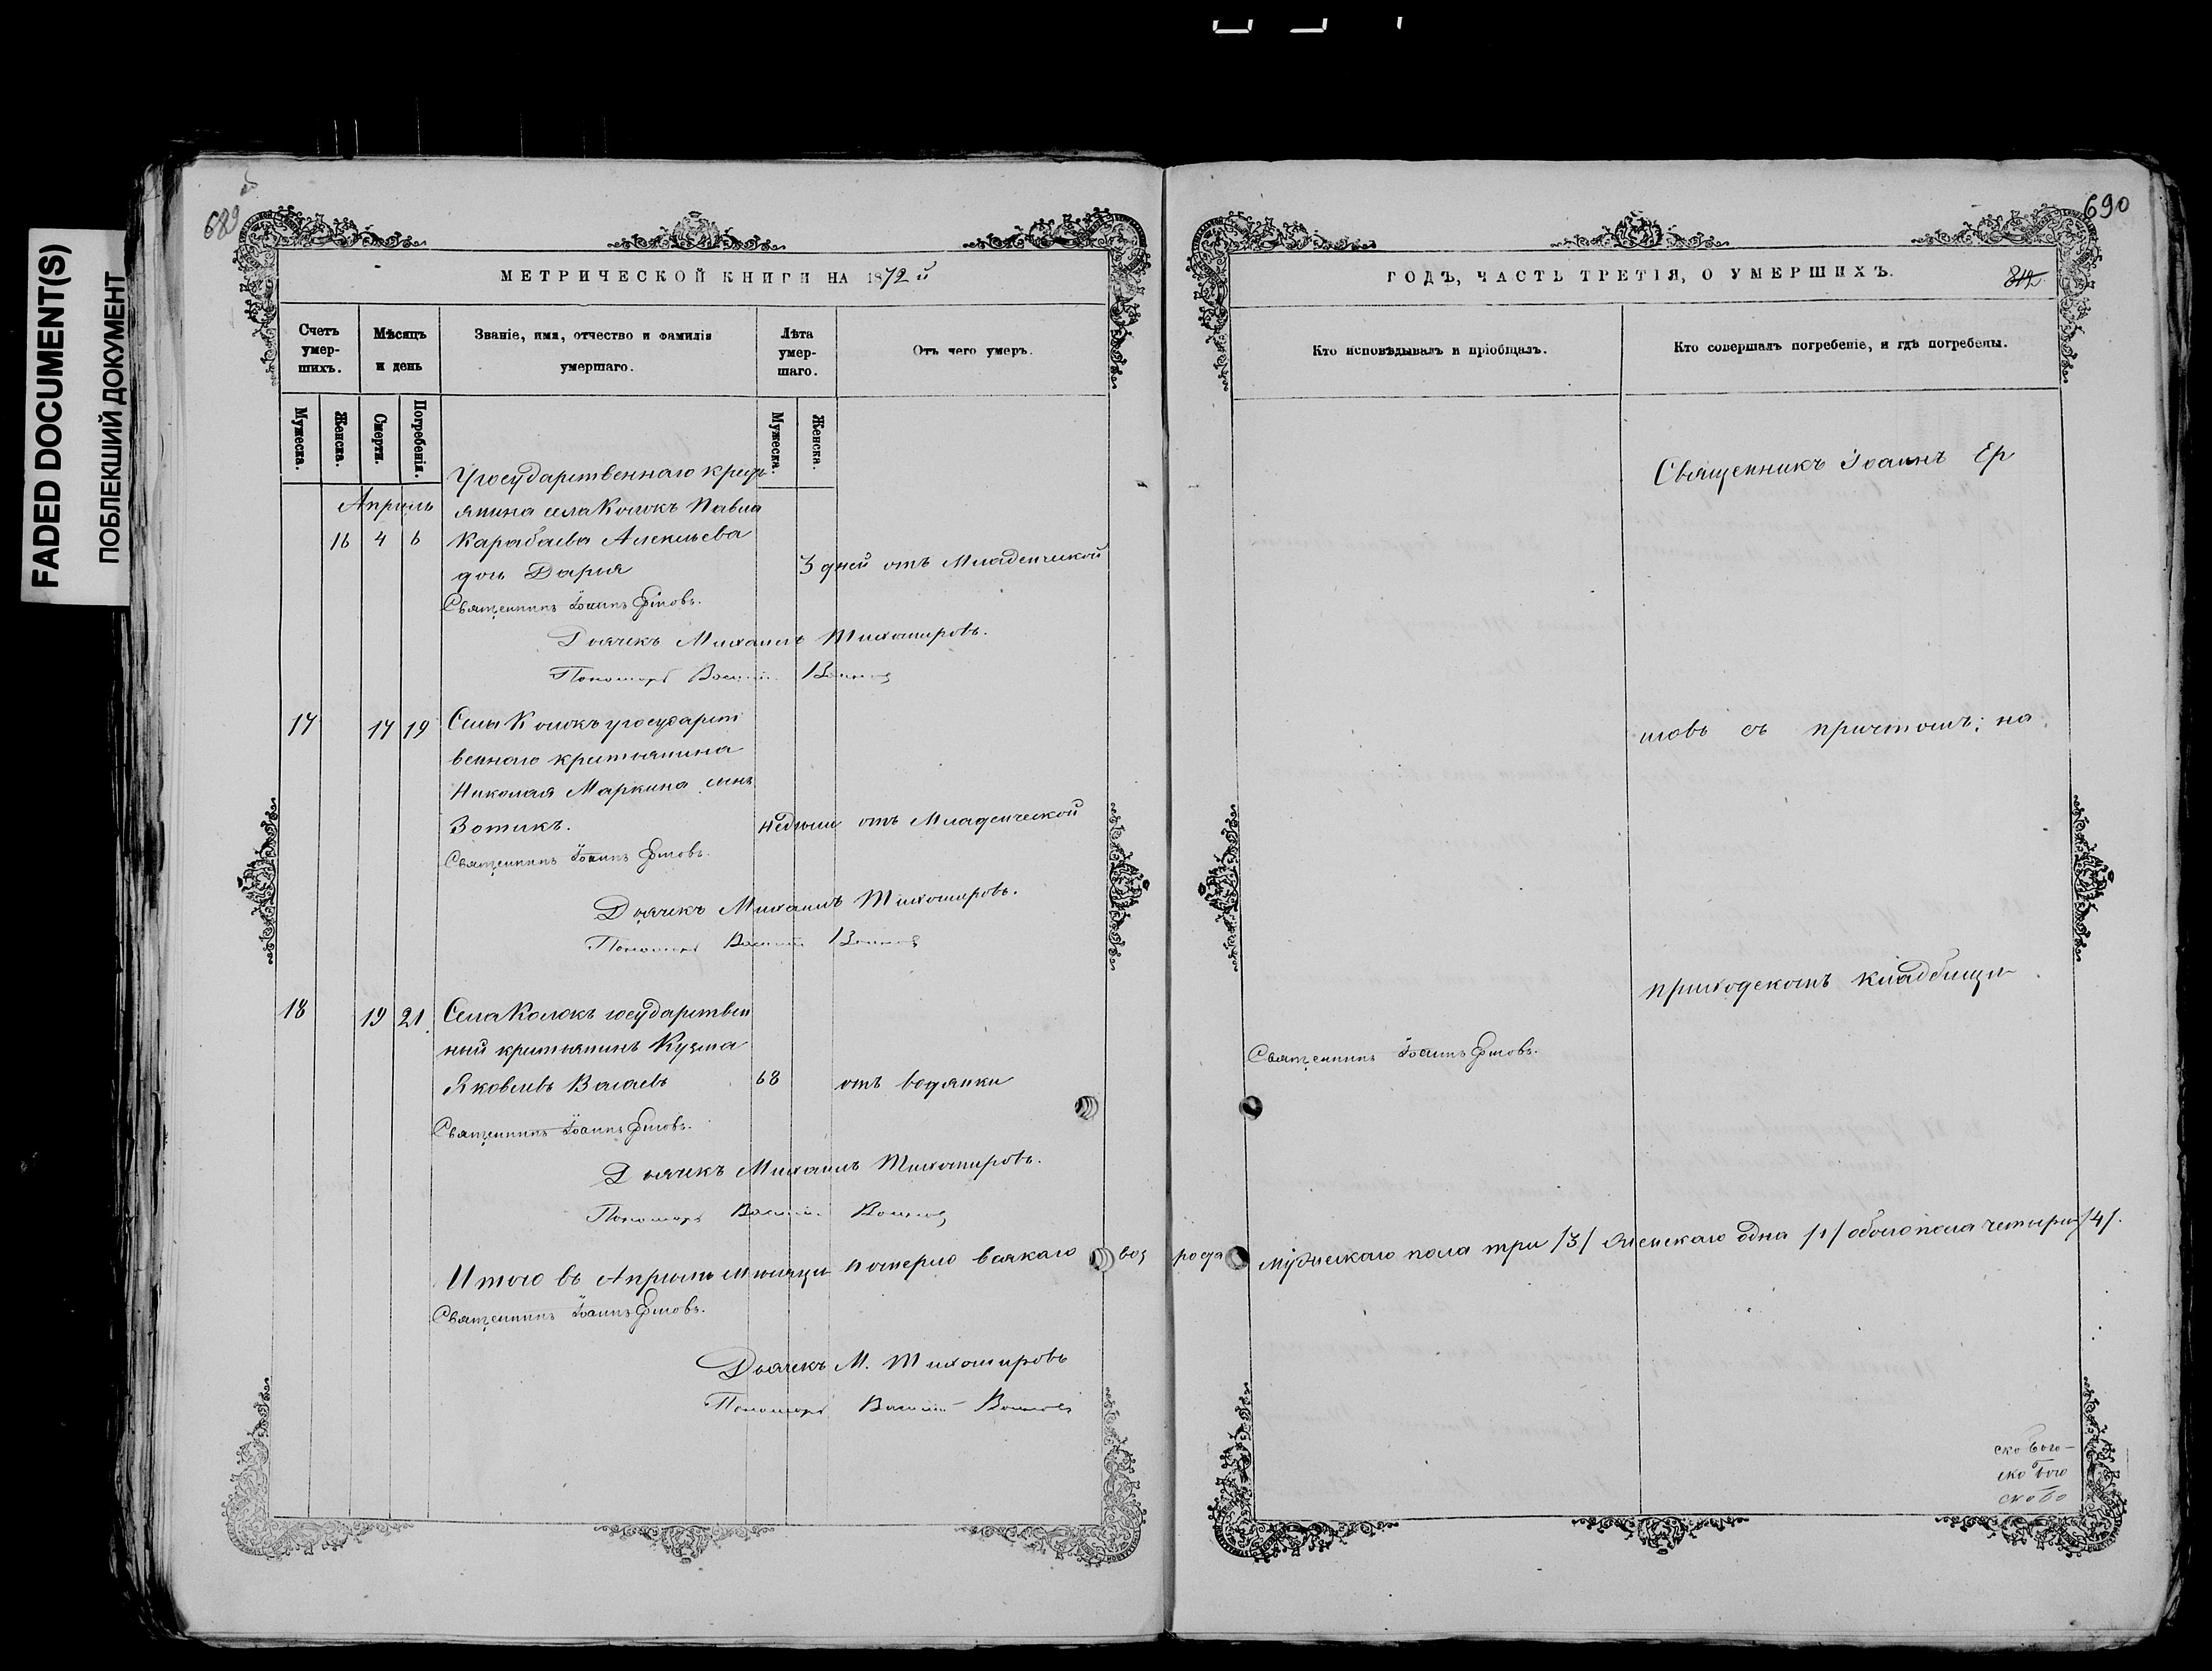 FADED DOCUMENT(S)
ПОБЛЕКШИЙ ДОКУМЕНТ
689
МЕТРИЧЕСКОЙ КНИГИ НА 1872 й
Счетъ умер-шихъ.
Мѣсяцъ и день
Званіе, имя, отчество и фамилія умершаго.
Лѣта умер-шаго.
Отъ чего умеръ.
Мужеска.
Женска.
Смерти.
Погребенія.
Мужеска.
Женска.
Апрѣль
Угосударственнаго кресть
янина села Колокъ Павла
16 4 6 Карабаева Алексѣева
дочь Дарья 3 дней отъ Младенческой
Священникъ Іоаннъ
Дьячекъ Михаилъ Тихомировъ.
Пономарь Василій
17 17 19 Села Колокъ угосударст
веннаго крестьянина
Николая Маркина сынъ
Зотикъ. недѣли отъ Младенческой
Священникъ Іоаннъ
Дьячекъ Михаилъ Тихомировъ.
Пономарь Василій
18 19 21. Села Колокъ государствен
ный крестьянинъ Кузма
Яковлевъ Вагаевъ 68 отъ водянки
Священникъ Іоаннъ
Дьячекъ Михаилъ Тихомировъ.
Пономарь Василій
Итого въ Апрѣлѣ мѣсяцѣ померло всякаго воз
Священникъ Іоаннъ
Дьячекъ М. Тихомировъ
Пономарь Василій
690
ГОДЪ, ЧАСТЬ ТРЕТІЯ, О УМЕРШИХЪ.
Кто исповѣдывалъ и пріобщалъ.
Кто совершалъ погребеніе, и гдѣ погребены.
Священникъ Іоаннъ Ер
шовъ съ причтомъ; на
приходскомъ кладбищѣ
Священникъ Іоаннъ
роста мужескаго пола три /3/ женскаго одна /1/ обоего пола четыре /4/.